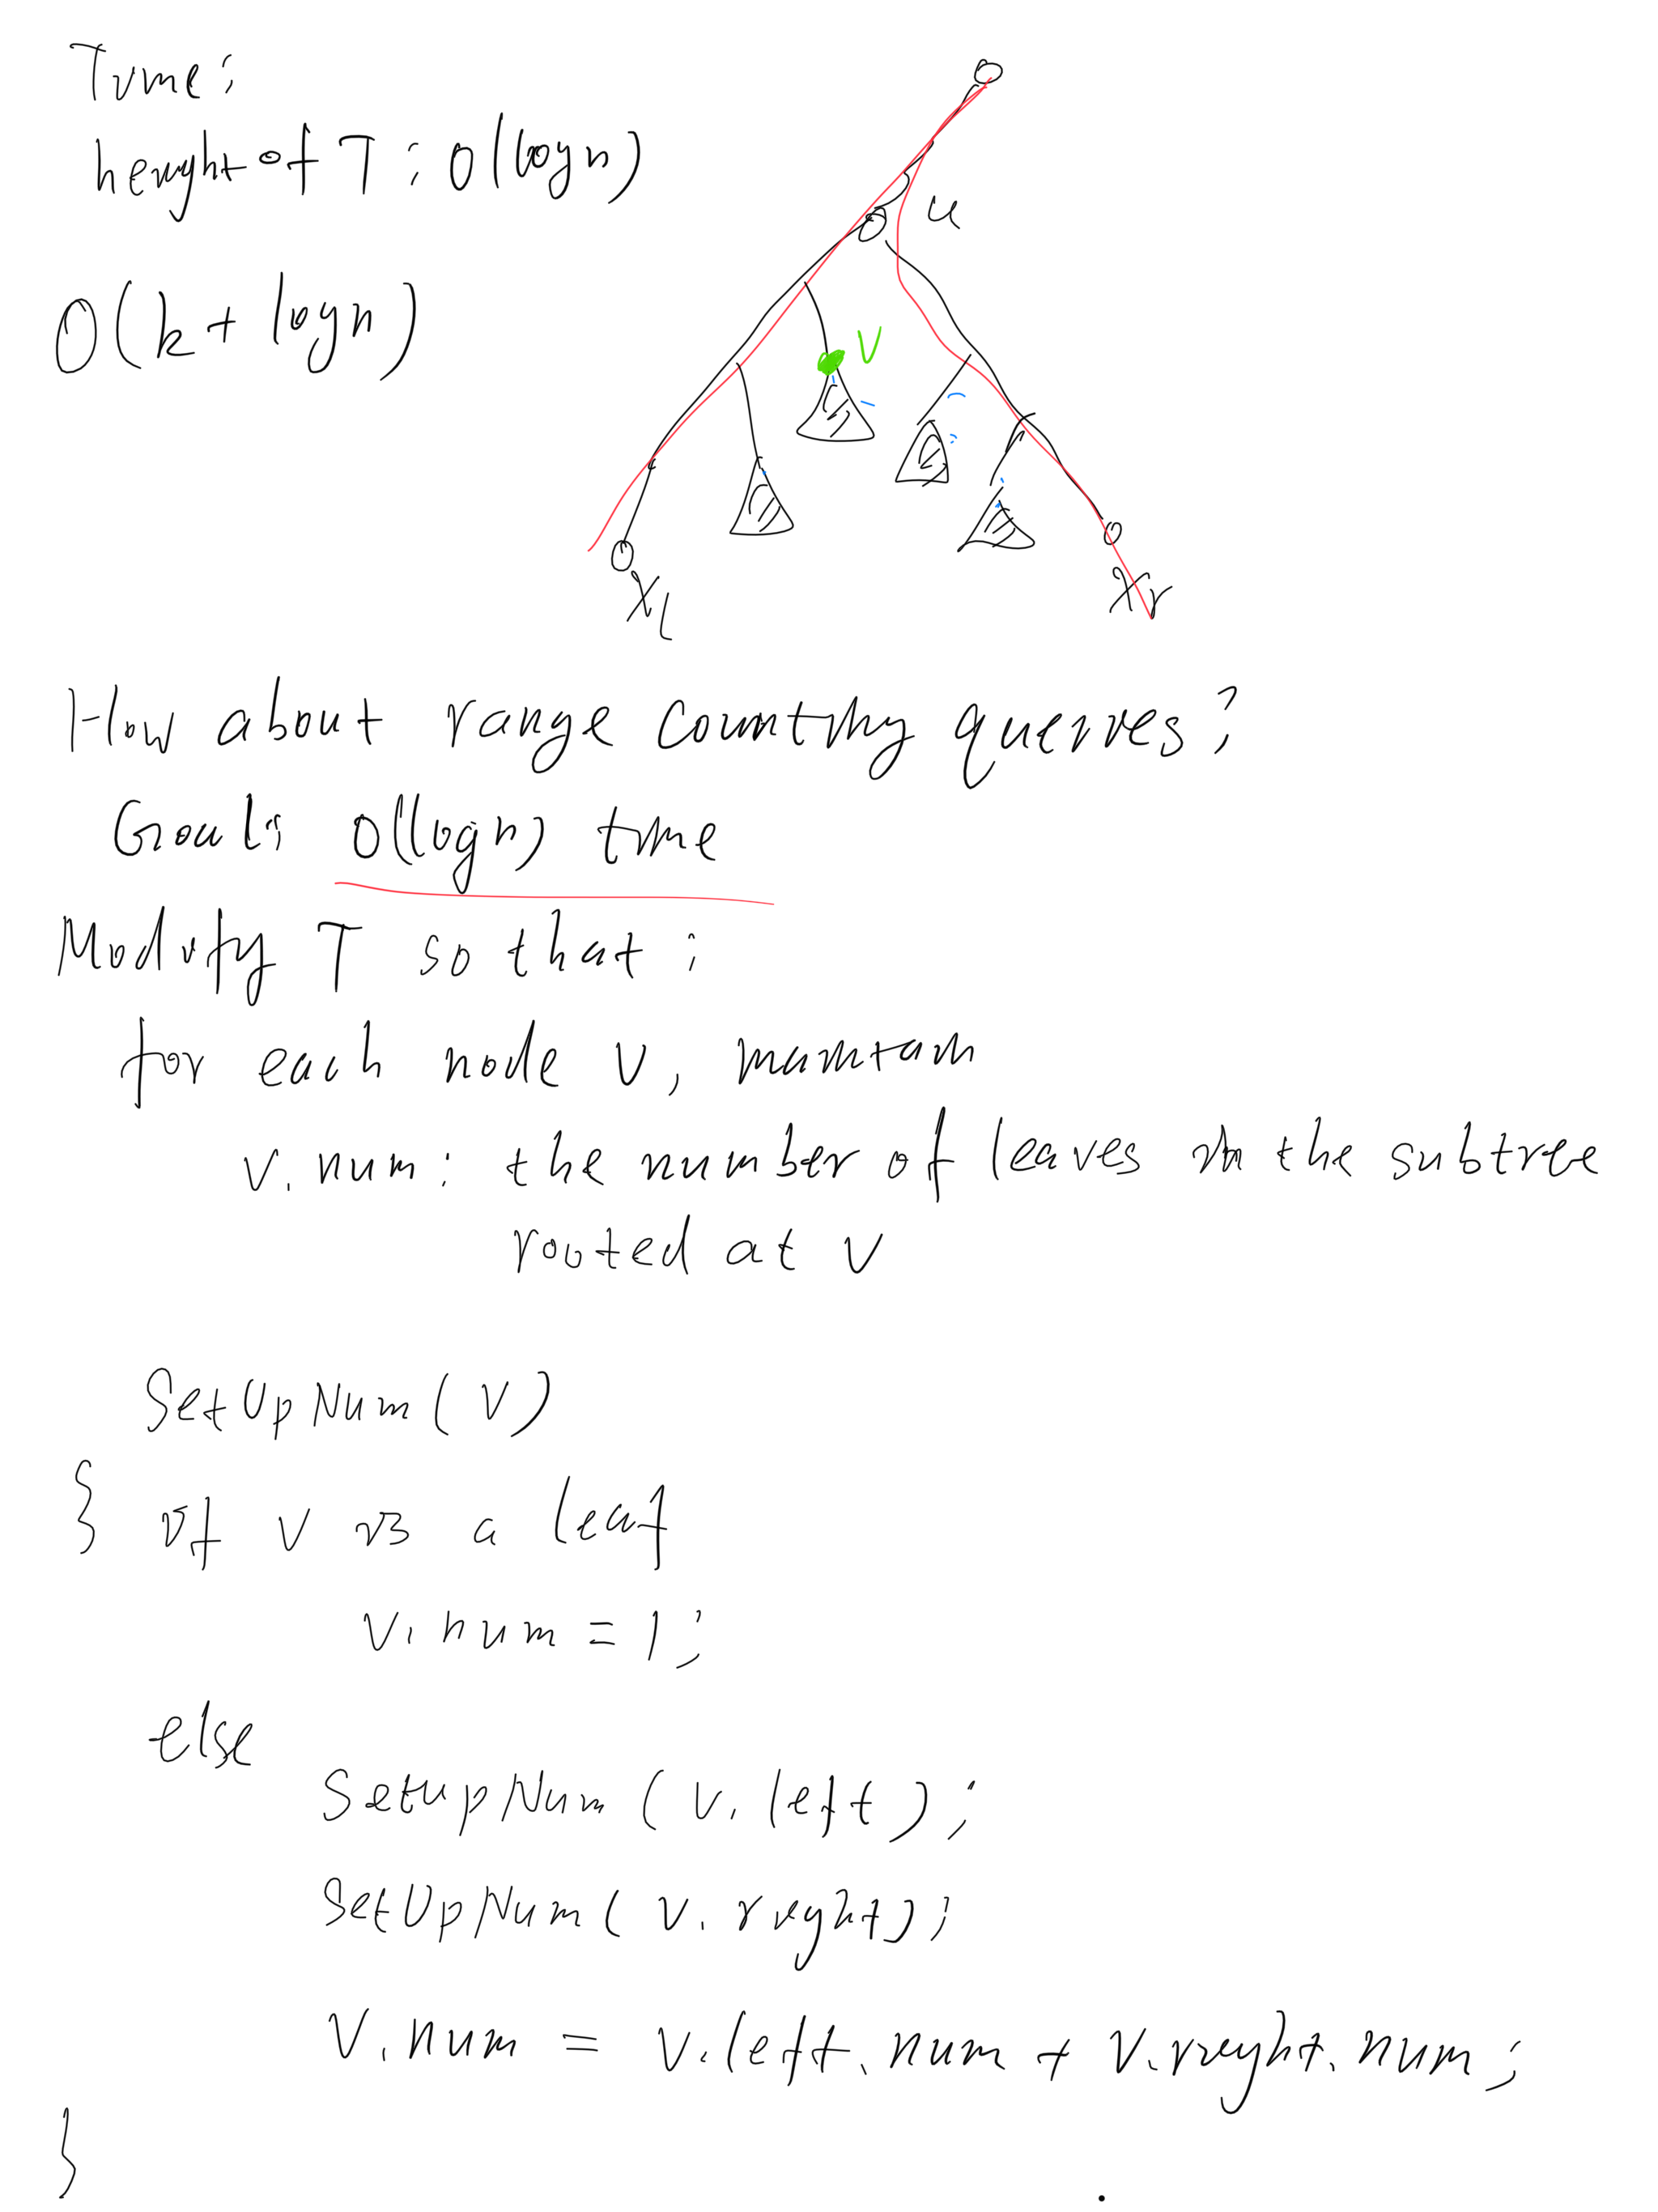 Time:
height of T: O(logn)
O(k + logn)
u
v
xl
xr
How about range counting queries?
Goal: O(logn) time
Modify T so that:
for each node v, maintain
v.num: the number of leaves in the subtree
rooted at v
SetUpNum(v)
{ if v is a leaf
v.num = 1;
else
SetUpNum(v.left);
SetUpNum(v.right);
v.num = v.left.num + v.right.num;
}